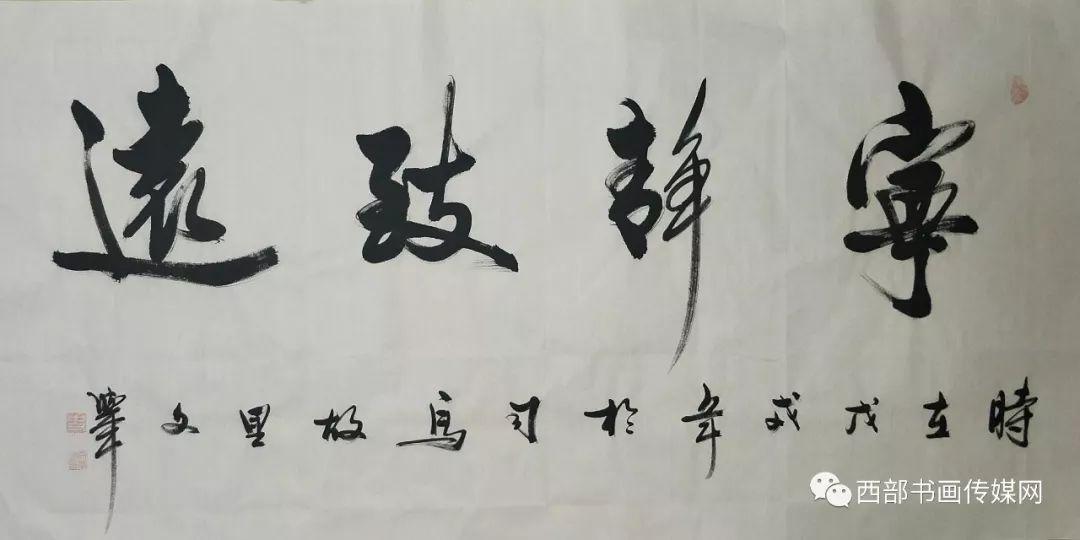 寧靜致遠
時在戊戌年於司馬故里文舉
西部书画传媒网